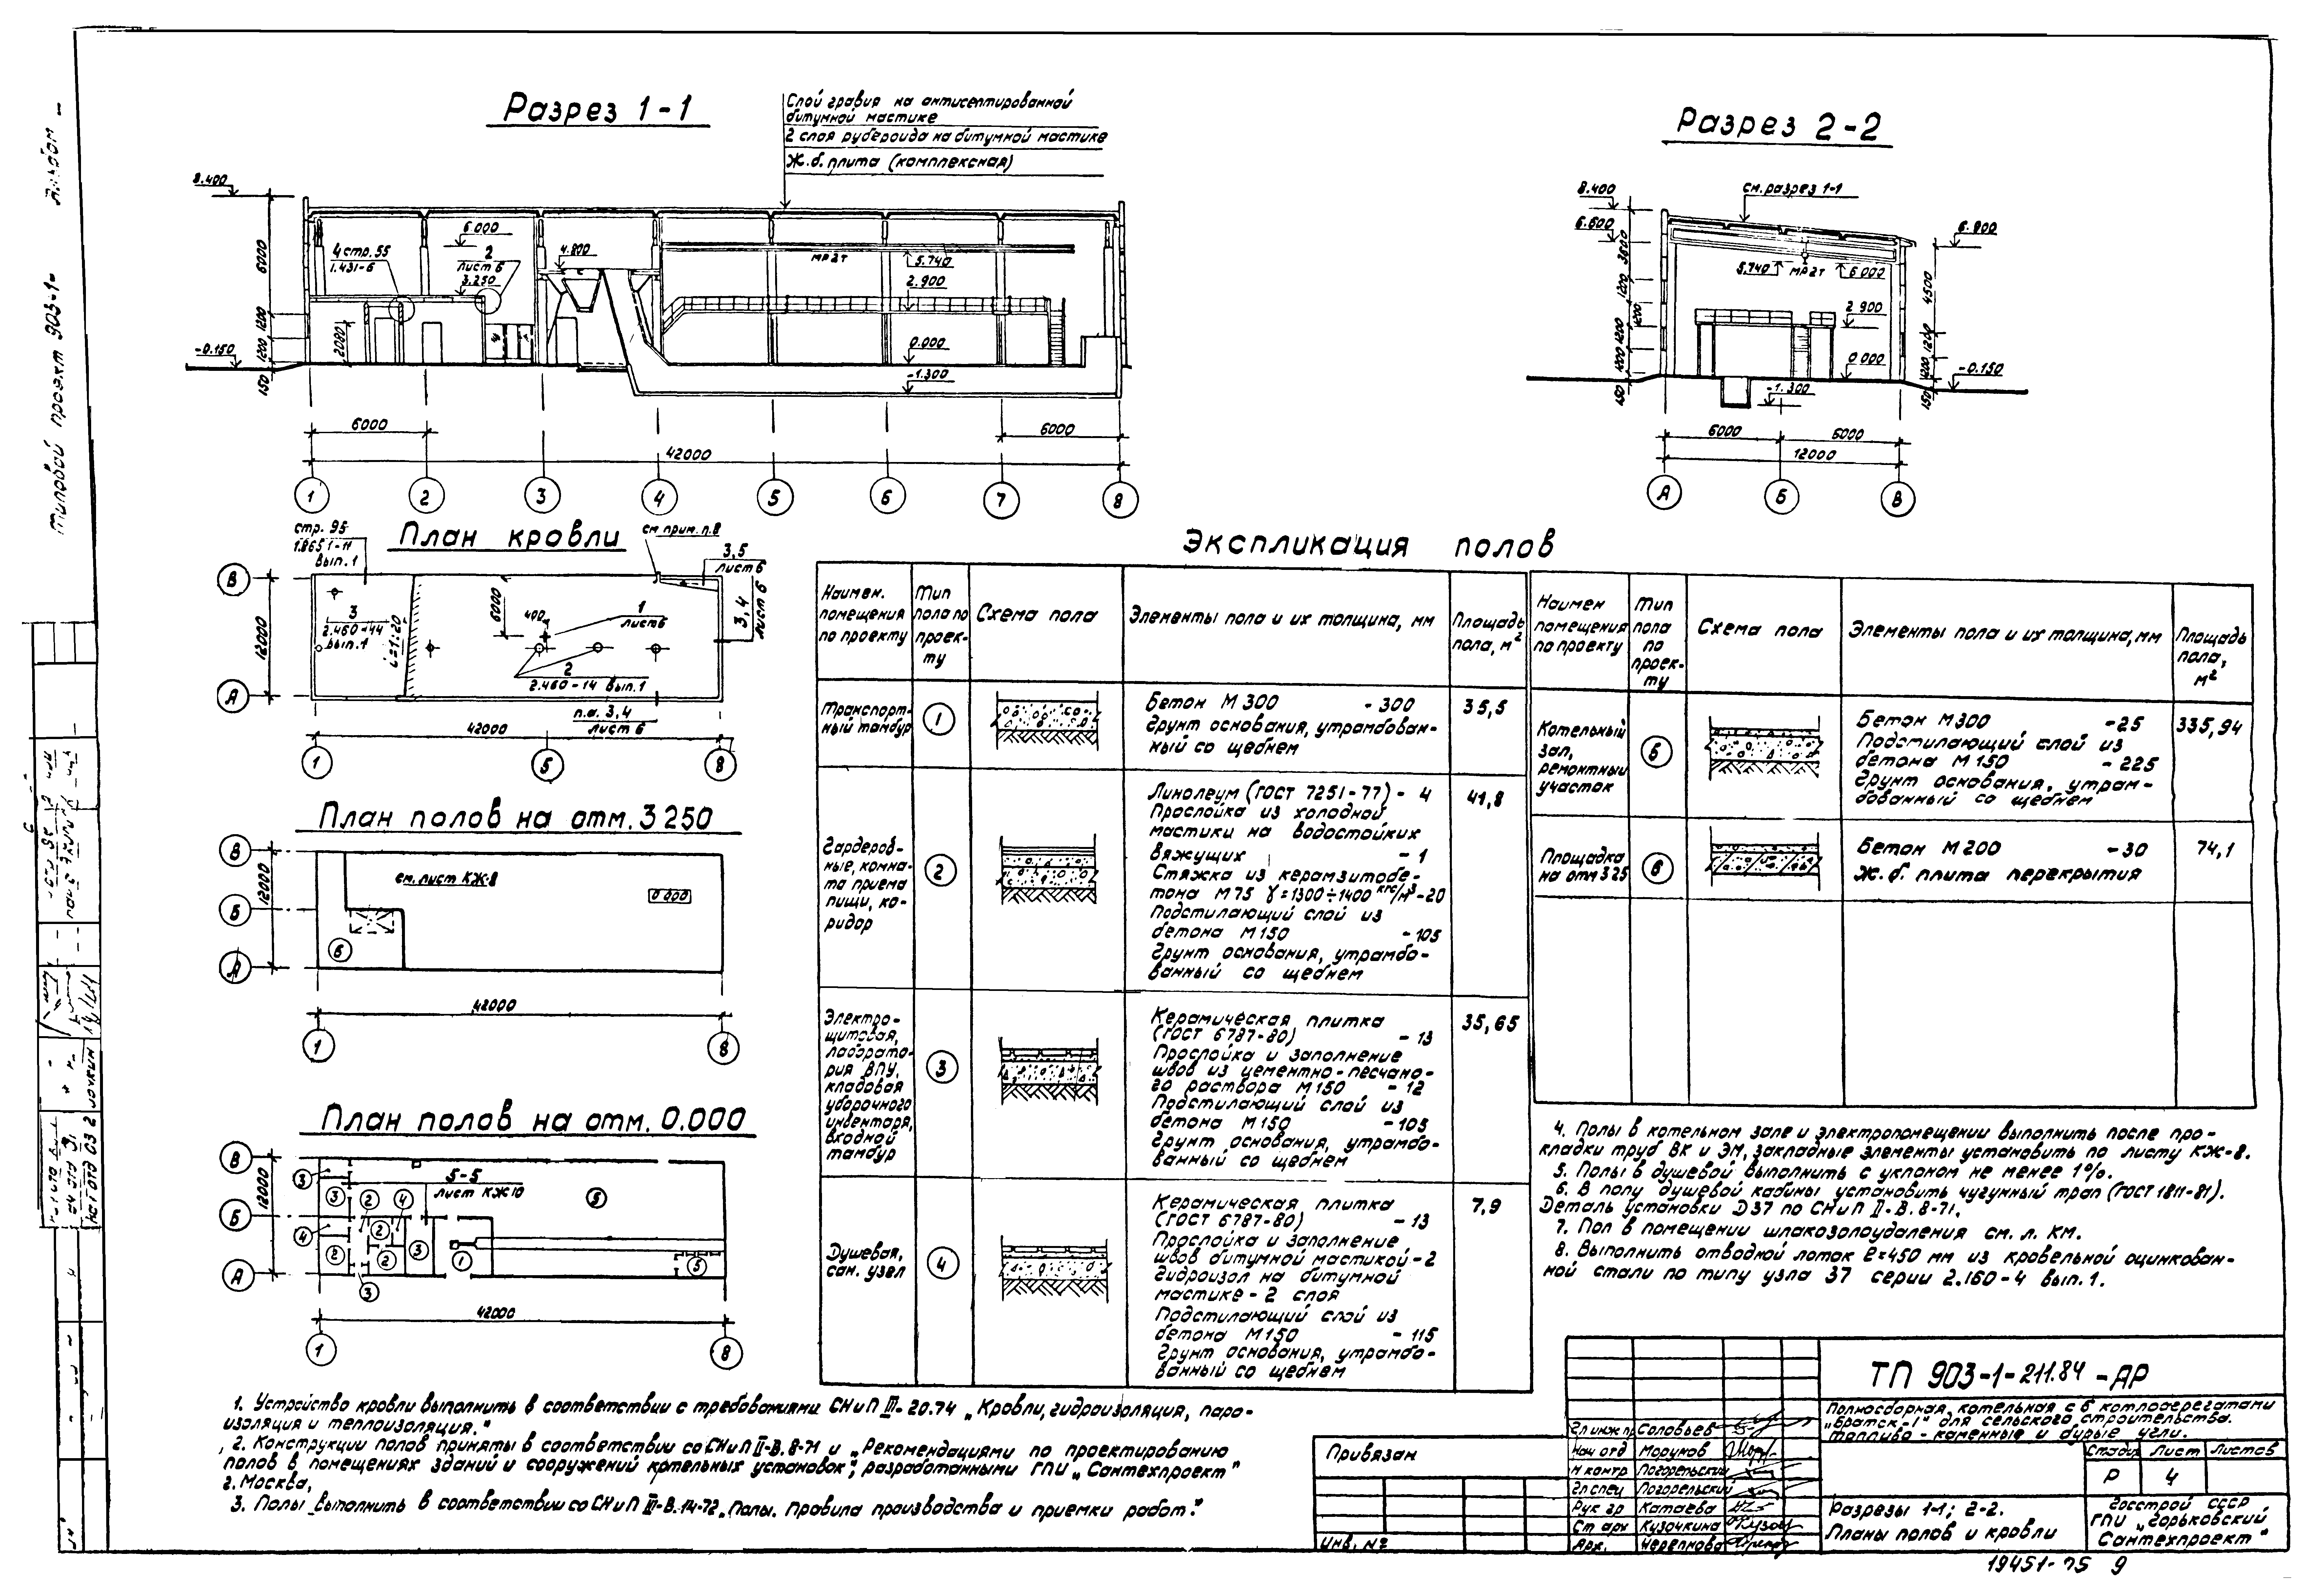 Альбом
Типовой проект 903-1-
Разрез 1-1
Слой гравия на антисептированной
битумной мастике
2 слоя рубероида на битумной мастике
Ж.б. плита (комплексная)
8.400
6.000
4.800
4 стр. 55
1.431-6
2
лист 6
3.250
МР 2т
5.740
2.900
0.000
-1.300
-0.150
6000
1200
1200
150
2080
6000
6000
42000
1 2 3 4 5 6 7 8
Разрез 2-2
см. разрез 1-1
8.400
6.600
6.800
5.740
МР 2т
6.000
2.900
0.000
-0.150
-1.300
3600
1200
1200
1200
1200
150
4500
1200
1200
150
6000
6000
12000
А Б В
План кровли
стр. 95
1.865 1-11
вып. 1
см. прим. п. 8
3,5
лист 6
3,4
лист 6
3
2.460-14
вып. 1
i=1:20
6000
400
1
лист 6
2
2.460-14 вып. 1
п.а. 3,4
лист 6
В
А
12000
42000
1 5 8
План полов на отм. 3 250
см. лист КЖ-8
0.000
6
В
Б
А
12000
42000
1 8
План полов на отм. 0.000
5-5
лист КЖ10
В
Б
А
12000
3 3 2 4 5
4 2 2 2 3 1 5
3
42000
1 8
Экспликация полов
Наимен. помещения по проекту
Тип пола по проекту
Схема пола
Элементы пола и их толщина, мм
Площадь пола, м²
Транспортный тамбур
1
Бетон М 300 - 300
Грунт основания, утрамбован-
ный со щебнем
35,5
Гардероб-
ные, комна-
та приема
пищи, ко-
ридор
2
Линолеум (ГОСТ 7251-77) - 4
Прослойка из холодной
мастики на водостойких
вяжущих - 1
Стяжка из керамзитобе-
тона М75 γ=1300÷1400 кгс/м³ - 20
Подстилающий слой из
бетона М150 - 105
Грунт основания, утрамбо-
ванный со щебнем
41,8
Электро-
щитовая,
лаборато-
рия ВПУ,
кладовая
уборочного
инвентаря,
входной
тамбур
3
Керамическая плитка
(ГОСТ 6787-80) - 13
Прослойка и заполнение
швов из цементно-песчано-
го раствора М150 - 12
Подстилающий слой из
бетона М150 - 105
Грунт основания, утрамбо-
ванный со щебнем
35,65
Душевая,
сан. узел
4
Керамическая плитка
(ГОСТ 6787-80) - 13
Прослойка и заполнение
швов битумной мастикой - 2
Гидроизол на битумной
мастике - 2 слоя
Подстилающий слой из
бетона М150 - 115
Грунт основания, утрамбо-
ванный со щебнем
7,9
Наимен помещения по проекту
Тип пола по проекту
Схема пола
Элементы пола и их толщина, мм
Площадь пола, м²
Котельный
зал,
ремонтный
участок
5
Бетон М300 - 25
Подстилающий слой из
бетона М150 - 225
Грунт основания, утрам-
бованный со щебнем
335,94
Площадка
на отм 3.25
6
Бетон М200 - 30
Ж.б. плита перекрытия
74,1
4. Полы в котельном зале и электропомещении выполнить после про-
кладки труб ВК и ЭМ, закладные элементы установить по листу КЖ-8.
5. Полы в душевой выполнить с уклоном не менее 1%.
6. В полу душевой кабины установить чугунный трап (ГОСТ 1811-81).
Деталь установки D37 по СНиП II-В.8-71.
7. Пол в помещении шлакозолоудаления см. л. КМ.
8. Выполнить отводной лоток ℓ=450 мм из кровельной оцинкован-
ной стали по типу узла 37 серии 2.160-4 вып. 1.
1. Устройство кровли выполнить в соответствии с требованиями СНиП III-20.74 „Кровли, гидроизоляция, паро-
изоляция и теплоизоляция."
2. Конструкции полов приняты в соответствии со СНиП II-В.8-71 и „Рекомендациями по проектированию
полов в помещениях зданий и сооружений котельных установок", разработанными ГПИ „Сантехпроект"
г. Москва.
3. Полы выполнить в соответствии со СНиП III-В.14-72 „Полы. Правила производства и приемки работ."
Привязан
Инв. №
Гл инж пр Соловьев
Нач отд Морунов
Н контр Погорельский
Гл спец Погорельский
Рук гр Катаева
Ст арх Кузочкина
Арх. Черепнова
ТП 903-1-211.84 -АР
Полносборная котельная с 6 котлоагрегатами
„Братск-1" для сельского строительства.
Топливо - каменные и бурые угли.
Стадия Лист Листов
Р 4
Разрезы 1-1; 2-2.
Планы полов и кровли
Госстрой СССР
ГПИ „Горьковский
Сантехпроект"
19451-05 9